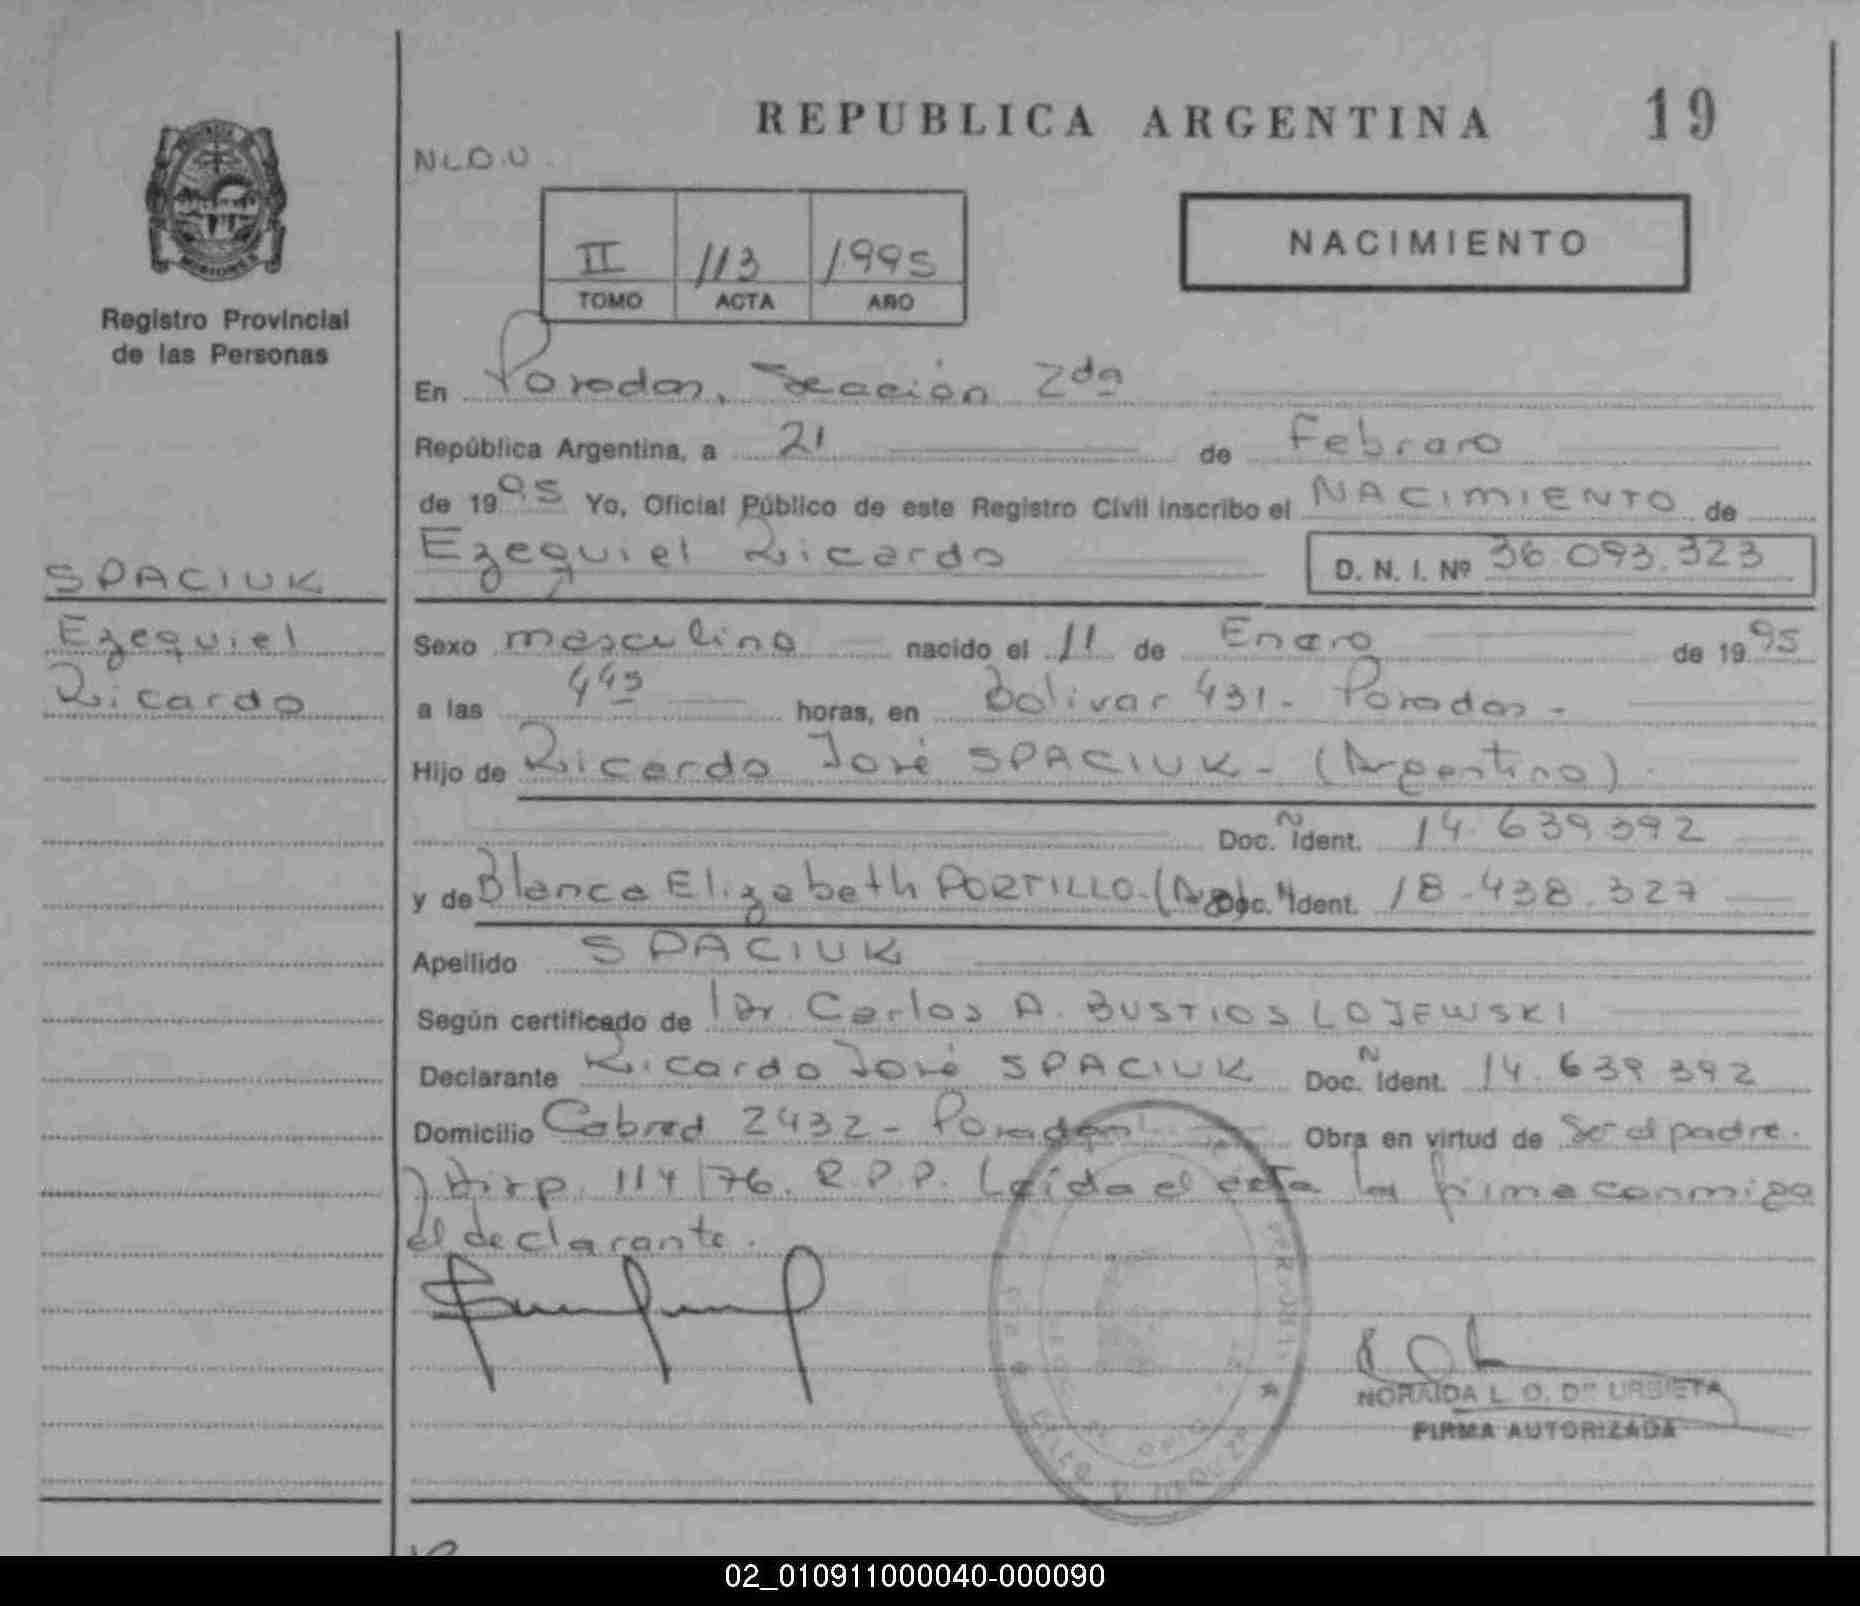 REPUBLICA ARGENTINA 19
Registro Provincial
de las Personas
N.L.O.U.
II 113 1995
TOMO ACTA AÑO
NACIMIENTO
En Posadas, Sección 2da
República Argentina, a 21 de Febrero
de 1995 Yo, Oficial Público de este Registro Civil inscribo el NACIMIENTO de
Ezequiel Ricardo D. N. I. Nº 36.093.323
SPACIUK
Ezequiel
Ricardo
Sexo masculino nacido el 11 de Enero de 1995
a las 445 horas, en Bolivar 431 - Posadas -
Hijo de Ricardo José SPACIUK - (Argentino).
Doc. N Ident. 14.639.392
y de Blanca Elizabeth PORTILLO - (Arg). Doc. N Ident. 18.438.327
Apellido SPACIUK
Según certificado de Dr. Carlos A. BUSTIOS LOJEWSKI
Declarante Ricardo José SPACIUK Doc. N Ident. 14.639.392
Domicilio Cabred 2432 - Posadas Obra en virtud de Ser el padre.
Disp. 114/76. R.P.P. Leída el acta la firma conmigo
el declarante.
NORAIDA L. O. De URBIETA
FIRMA AUTORIZADA
02_010911000040-000090